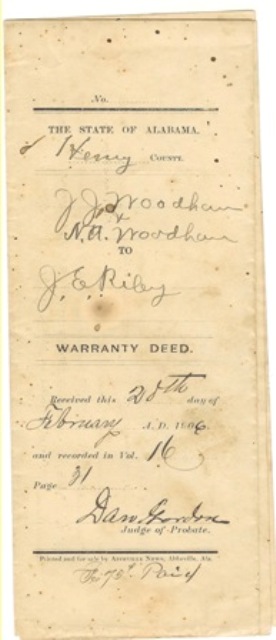 No.
THE STATE OF ALABAMA,
Henry COUNTY.
J J Woodham
&
N.A. Woodham
TO
J. E Riley
WARRANTY DEED.
Received this 28th day of
February A. D. 1906
and recorded in Vol. 16
Page 31
Dan Gordon
Judge of Probate.
Printed and for sale by Abbeville News, Abbeville, Ala.
75¢ Paid